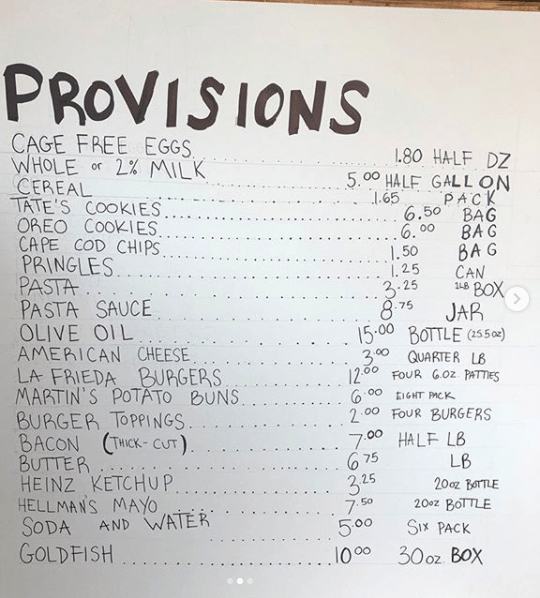 PROVISIONS
CAGE FREE EGGS.................... 1.80 HALF DZ
WHOLE or 2% MILK.................... 5.00 HALF GALLON
CEREAL.................... 1.65 PACK
TATE'S COOKIES.................... 6.50 BAG
OREO COOKIES.................... 6.00 BAG
CAPE COD CHIPS.................... 1.50 BAG
PRINGLES.................... 1.25 CAN
PASTA.................... 3.25 1LB BOX
PASTA SAUCE.................... 8.75 JAR
OLIVE OIL.................... 15.00 BOTTLE (25.5oz)
AMERICAN CHEESE.................... 3.00 QUARTER LB
LA FRIEDA BURGERS.................... 12.00 FOUR 6.OZ PATTIES
MARTIN'S POTATO BUNS.................... 6.00 EIGHT PACK
BURGER TOPPINGS.................... 2.00 FOUR BURGERS
BACON (THICK-CUT).................... 7.00 HALF LB
BUTTER.................... 6.75 LB
HEINZ KETCHUP.................... 3.25 20oz BOTTLE
HELLMAN'S MAYO.................... 7.50 20oz BOTTLE
SODA AND WATER.................... 5.00 SIX PACK
GOLDFISH.................... 10.00 30oz BOX